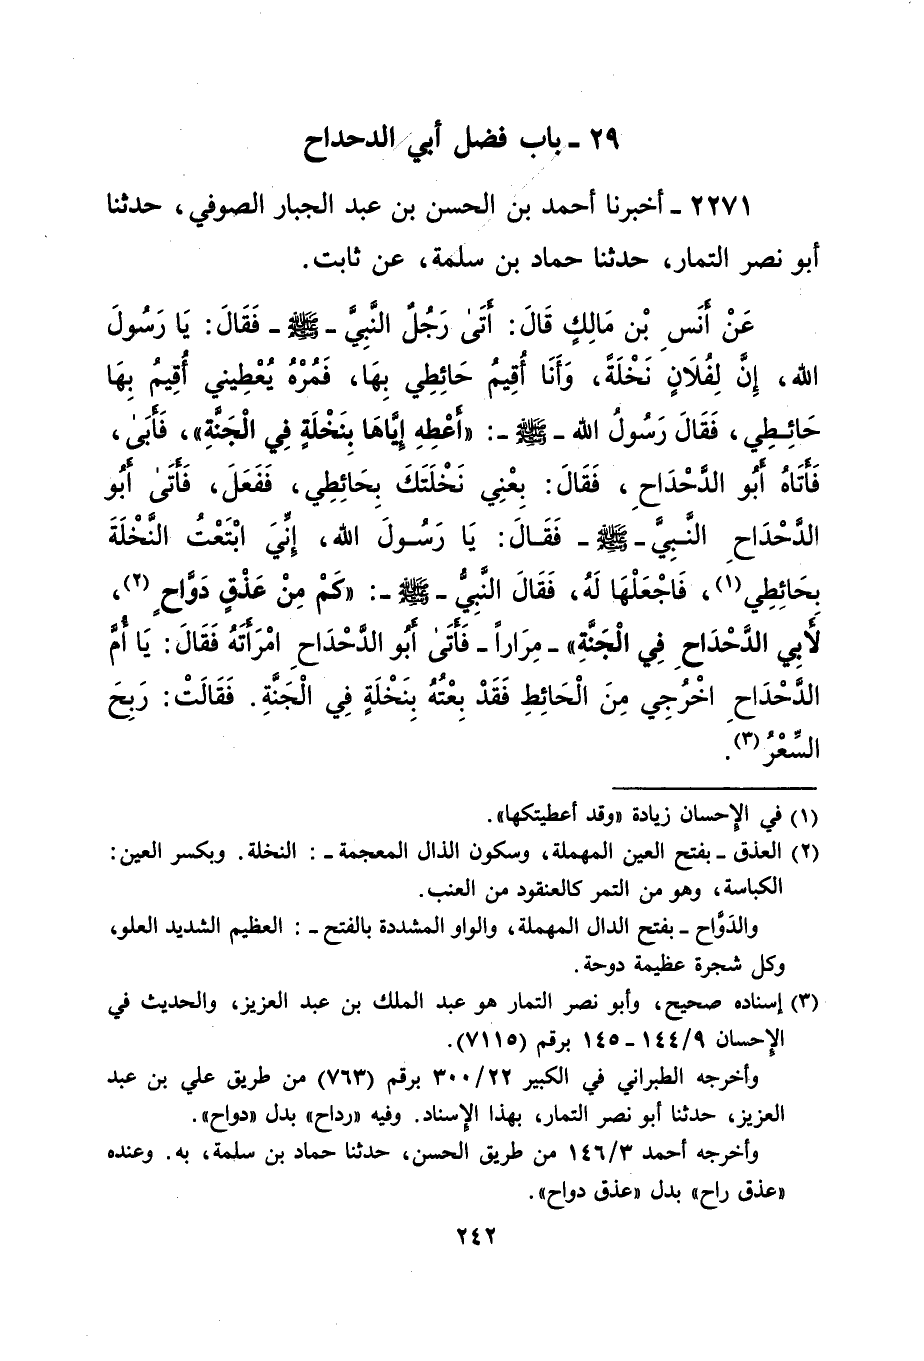 ٢٩ - باب فضل أبي الدحداح
٢٢٧١ - أخبرنا أحمد بن الحسن بن عبد الجبار الصوفي، حدثنا
أبو نصر التمار، حدثنا حماد بن سلمة، عن ثابت.
عَنْ أَنَسِ بْنِ مَالِكٍ قَالَ: أَتَىٰ رَجُلٌ النَّبِيَّ - ﷺ - فَقَالَ: يَا رَسُولَ
الله، إِنَّ لِفُلَانٍ نَخْلَةً، وَأَنَا أُقِيمُ حَائِطِي بِهَا، فَمُرْهُ يُعْطِينِي أُقِيمُ بِهَا
حَائِطِي، فَقَالَ رَسُولُ الله - ﷺ -: «أَعْطِهِ إِيَّاهَا بِنَخْلَةٍ فِي الْجَنَّةِ»، فَأَبَىٰ،
فَأَتَاهُ أَبُو الدَّحْدَاحِ، فَقَالَ: بِعْنِي نَخْلَتَكَ بِحَائِطِي، فَفَعَلَ، فَأَتَىٰ أَبُو
الدَّحْدَاحِ النَّبِيَّ - ﷺ - فَقَالَ: يَا رَسُولَ الله، إِنِّيَ ابْتَعْتُ النَّخْلَةَ
بِحَائِطِي(١)، فَاجْعَلْهَا لَهُ، فَقَالَ النَّبِيُّ - ﷺ -: «كَمْ مِنْ عَذْقٍ دَوَّاحٍ(٢)،
لأَبِي الدَّحْدَاحِ فِي الْجَنَّةِ» - مِرَاراً - فَأَتَىٰ أَبُو الدَّحْدَاحِ امْرَأَتَهُ فَقَالَ: يَا أُمَّ
الدَّحْدَاحِ اخْرُجِي مِنَ الْحَائِطِ فَقَدْ بِعْتُهُ بِنَخْلَةٍ فِي الْجَنَّةِ. فَقَالَتْ: رَبِحَ
السِّعْرُ(٣).
(١) في الإحسان زيادة «وقد أعطيتكها».
(٢) العذق - بفتح العين المهملة، وسكون الذال المعجمة -: النخلة. وبكسر العين:
الكباسة، وهو من التمر كالعنقود من العنب.
والدَوَّاح - بفتح الدال المهملة، والواو المشددة بالفتح -: العظيم الشديد العلو،
وكل شجرة عظيمة دوحة.
(٣) إسناده صحيح، وأبو نصر التمار هو عبد الملك بن عبد العزيز، والحديث في
الإحسان ١٤٤/٩ - ١٤٥ برقم (٧١١٥).
وأخرجه الطبراني في الكبير ٣٠٠/٢٢ برقم (٧٦٣) من طريق علي بن عبد
العزيز، حدثنا أبو نصر التمار، بهذا الإسناد. وفيه «رداح» بدل «دواح».
وأخرجه أحمد ١٤٦/٣ من طريق الحسن، حدثنا حماد بن سلمة، به. وعنده
«عذق راح» بدل «عذق دواح».
٢٤٢